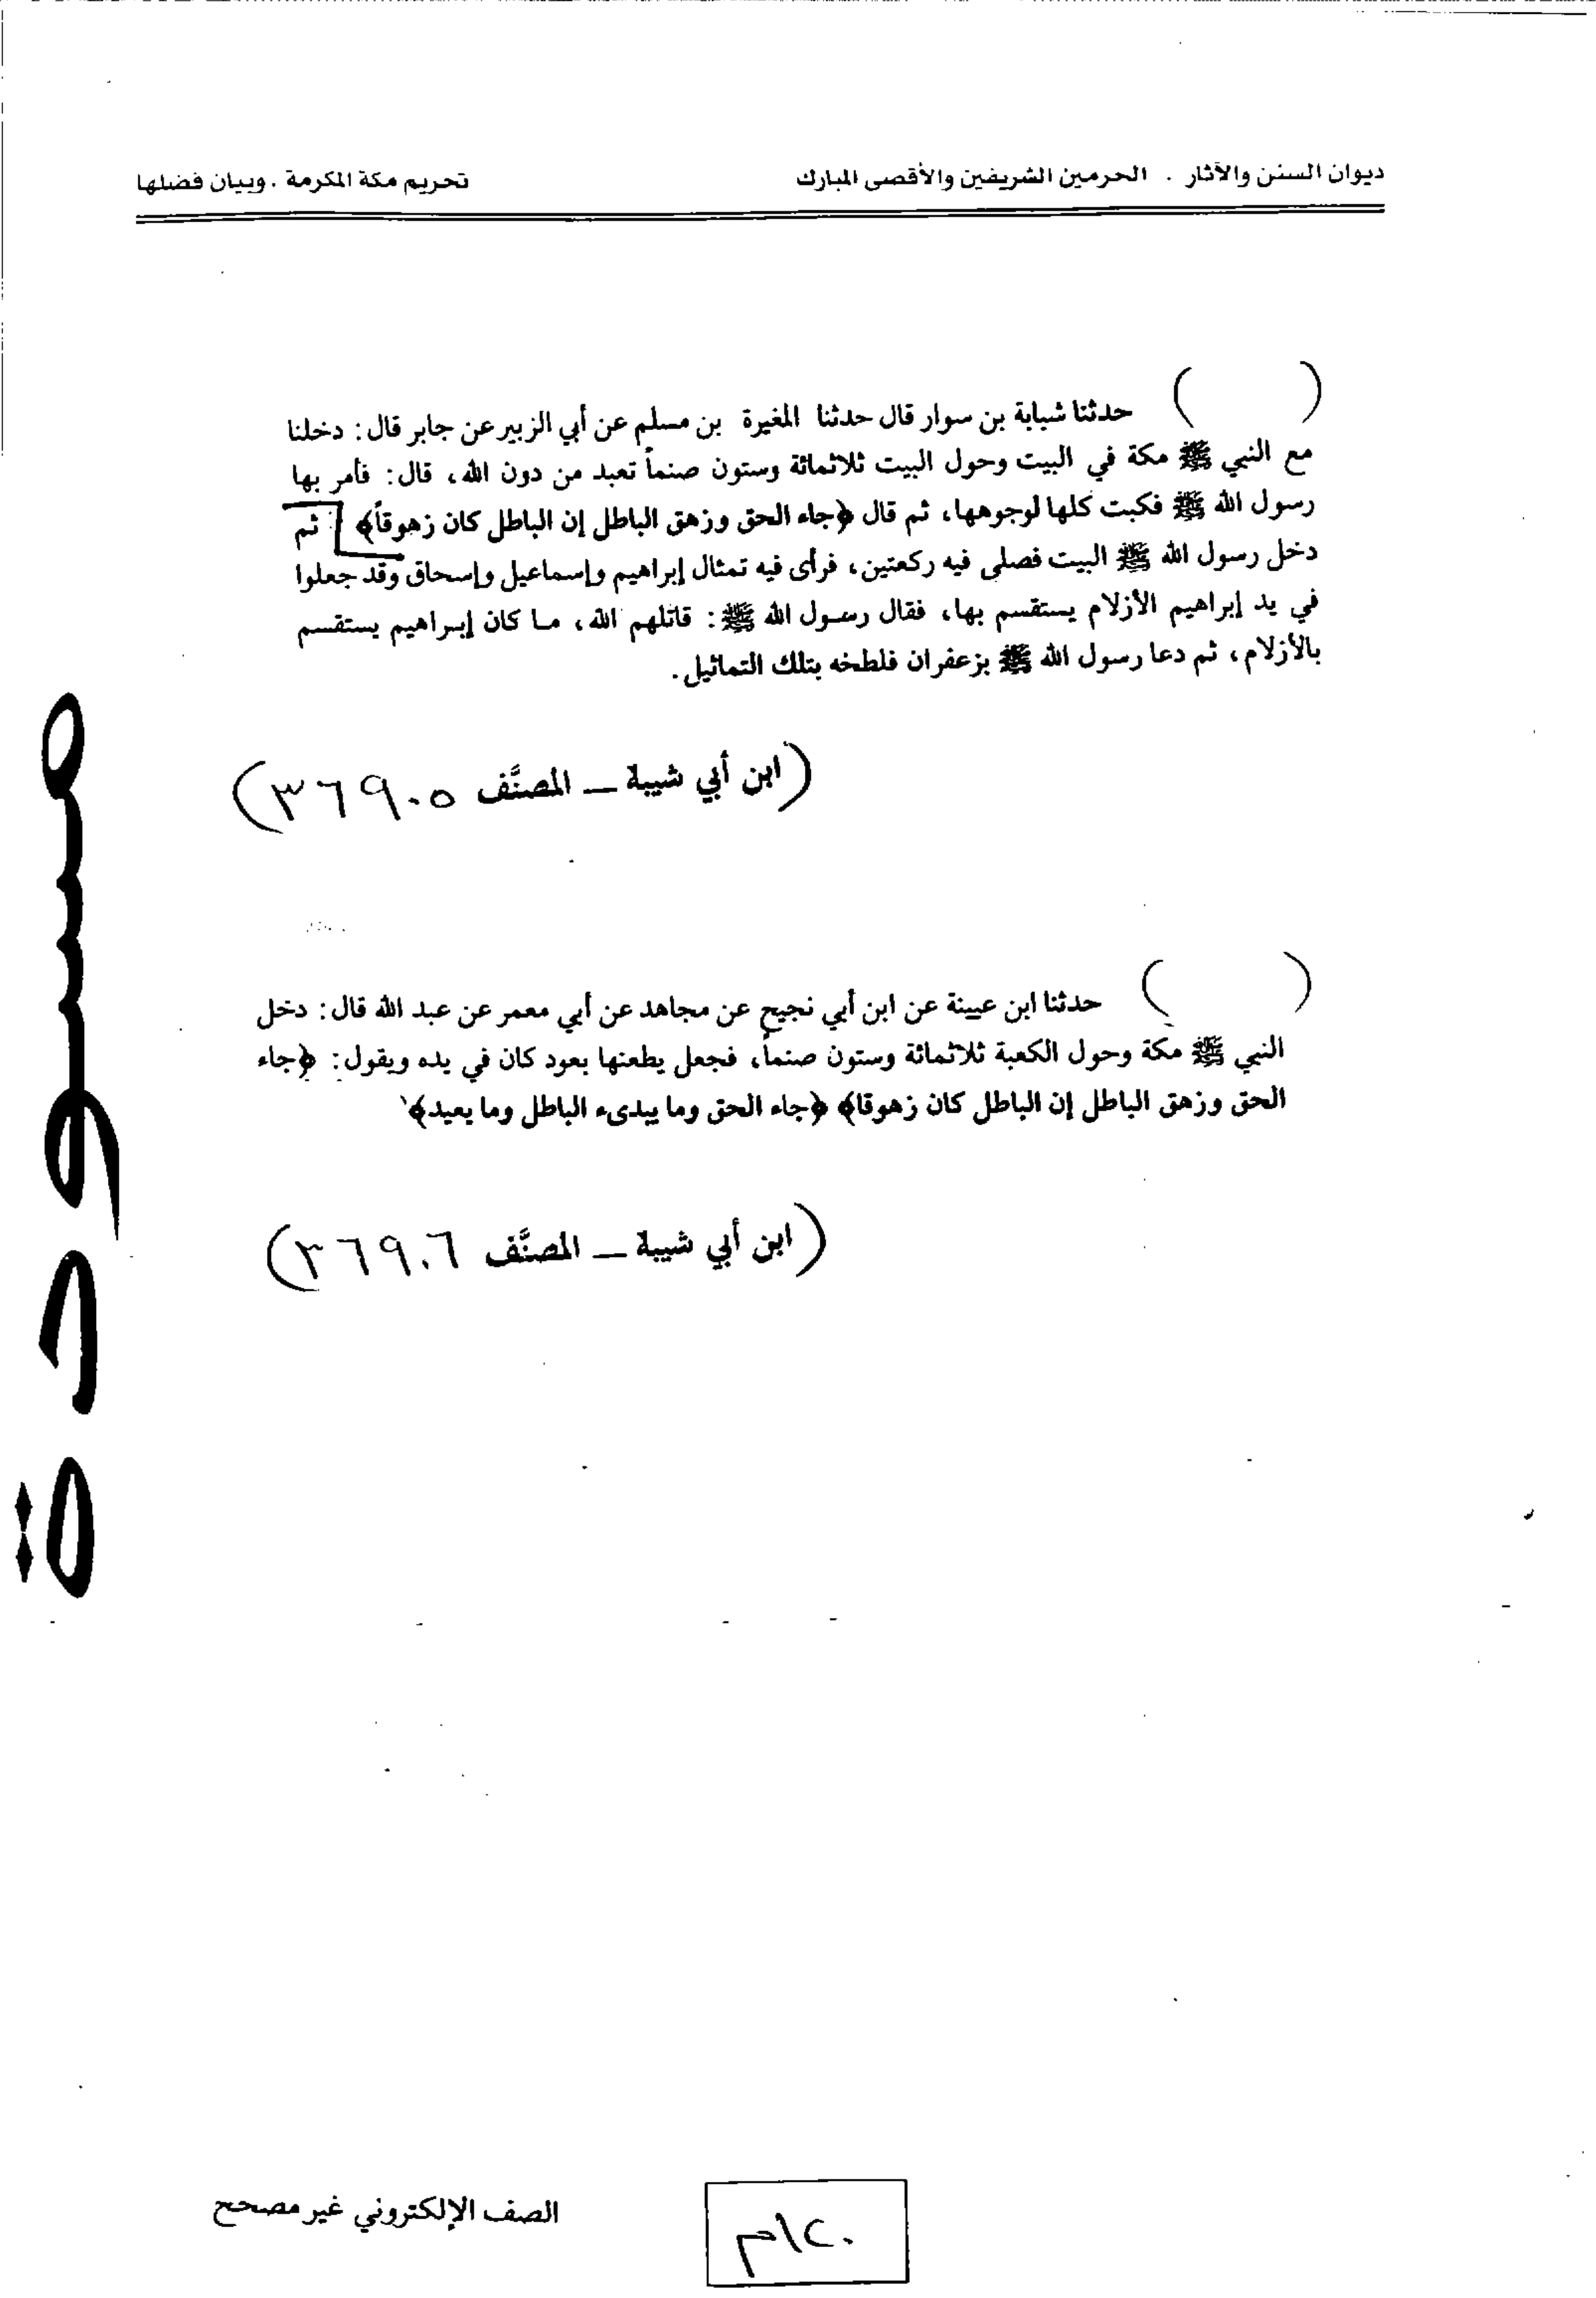 ديوان السنن والآثار . الحرمين الشريفين والأقصى المبارك
تحريم مكة المكرمة . وبيان فضلها
( ) حدثنا شبابة بن سوار قال حدثنا المغيرة بن مسلم عن أبي الزبير عن جابر قال: دخلنا
مع النبي ﷺ مكة في البيت وحول البيت ثلاثمائة وستون صنماً تعبد من دون الله، قال: فأمر بها
رسول الله ﷺ فكبت كلها لوجوهها، ثم قال ﴿جاء الحق وزهق الباطل إن الباطل كان زهوقاً﴾ ثم
دخل رسول الله ﷺ البيت فصلى فيه ركعتين، فرأى فيه تمثال إبراهيم وإسماعيل وإسحاق وقد جعلوا
في يد إبراهيم الأزلام يستقسم بها، فقال رسول الله ﷺ: قاتلهم الله، ما كان إبراهيم يستقسم
بالأزلام، ثم دعا رسول الله ﷺ بزعفران فلطخه بتلك التماثيل.
(ابن أبي شيبة – المصنَّف ٣٦٩٠٥)
( ) حدثنا ابن عيينة عن ابن أبي نجيح عن مجاهد عن أبي معمر عن عبد الله قال: دخل
النبي ﷺ مكة وحول الكعبة ثلاثمائة وستون صنماً، فجعل يطعنها بعود كان في يده ويقول: ﴿جاء
الحق وزهق الباطل إن الباطل كان زهوقا﴾ ﴿جاء الحق وما يبدىء الباطل وما يعيد﴾
(ابن أبي شيبة – المصنَّف ٣٦٩٠٦)
مسودة
٢٠\م
الصف الإلكتروني غير مصحح